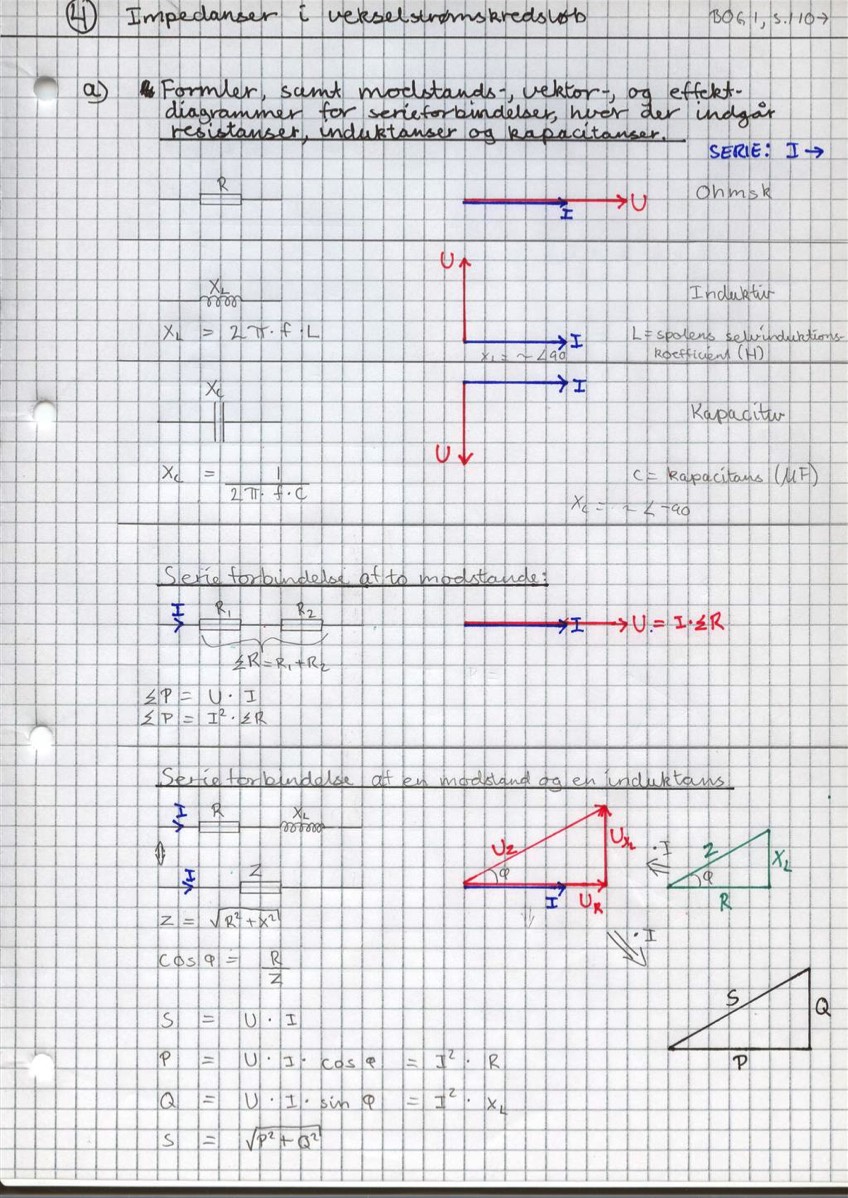 4 Impedanser i vekselstrømskredsløb BOG 1, s.110→
a) Formler, samt modstands-, vektor-, og effekt-
diagrammer for serieforbindelser, hvor der indgår
resistanser, induktanser og kapacitanser.
SERIE: I →
R U I Ohmsk
U
XL Induktiv
XL = 2π·f·L I L=spolens selvinduktions-
XL = ~∠90 koefficient (H)
XC I
Kapacitiv
U
XC = 1 / 2π·f·C C = kapacitans (μF)
XC = ~∠-90
Serieforbindelse af to modstande:
I R1 R2 I U = I·ΣR
ΣR=R1+R2
ΣP = U · I
ΣP = I²·ΣR
Serieforbindelse af en modstand og en induktans
I R XL
UZ UXL ·I Z XL
I Z φ φ
I UR R
Z = √R²+X²
·I
cos φ = R / Z
S Q
S = U · I
P = U · I · cos φ = I² · R P
Q = U · I · sin φ = I² · XL
S = √P²+Q²